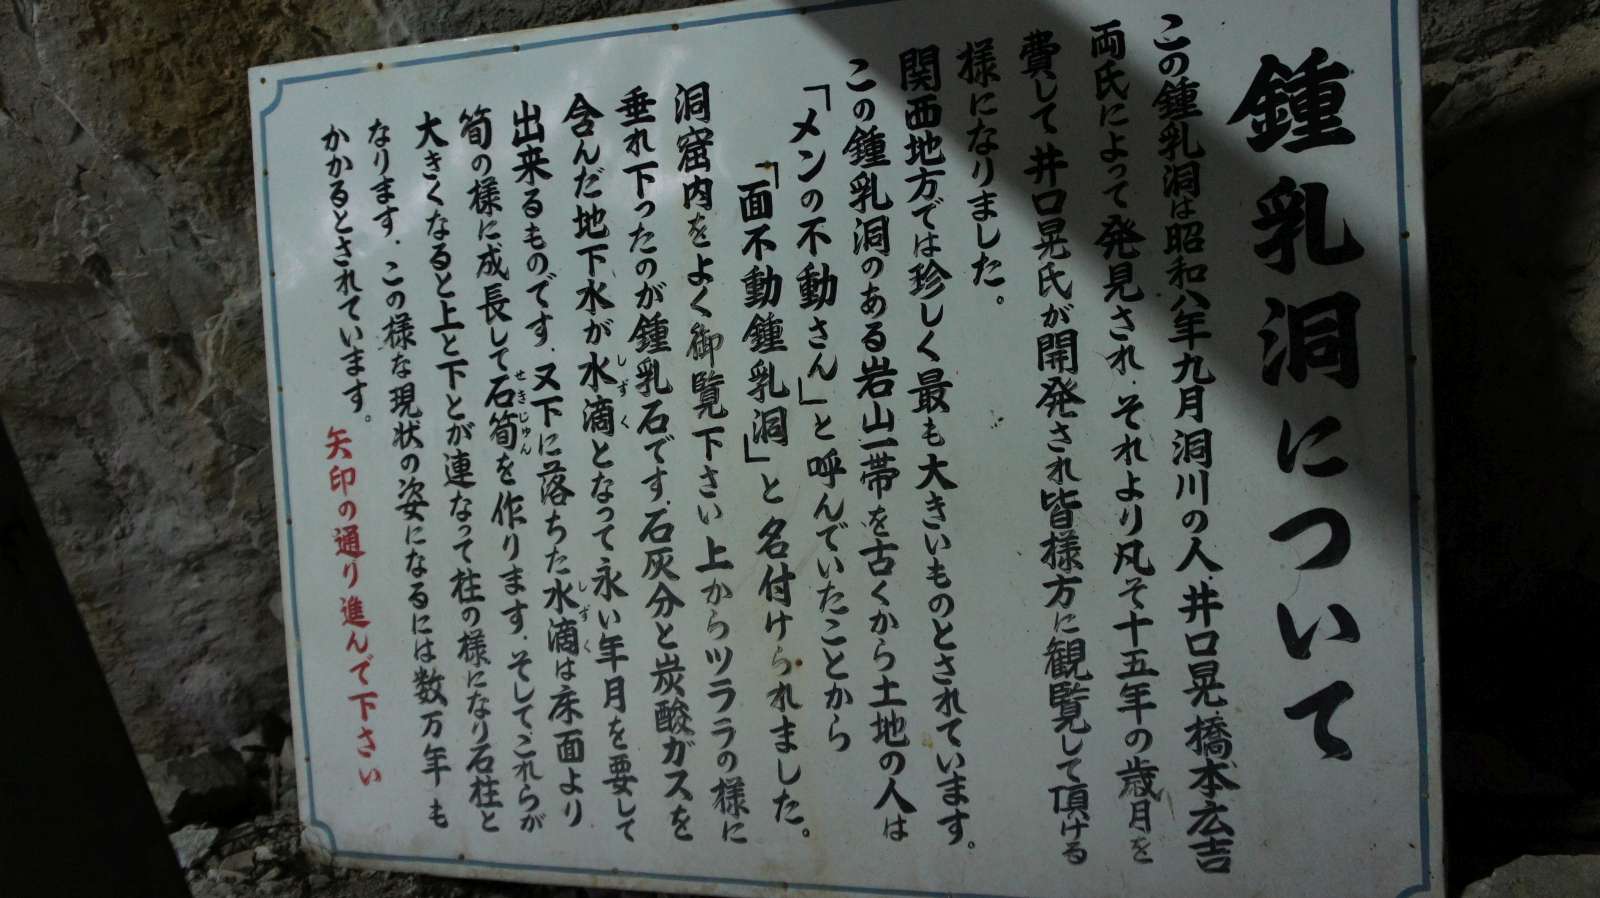 鍾乳洞について
この鍾乳洞は昭和八年九月洞川の人、井口晃橋本広吉
両氏によって発見され、それより凡そ十五年の歳月を
費して井口晃氏が開発され皆様方に観覧して頂ける
様になりました。
関西地方では珍しく最も大きいものとされています。
この鍾乳洞のある岩山一帯を古くから土地の人は
「メンの不動さん」と呼んでいたことから
「面不動鍾乳洞」と名付けられました。
洞窟内をよく御覧下さい上からツララの様に
垂れ下ったのが鍾乳石です、石灰分と炭酸ガスを
含んだ地下水が水滴となって永い年月を要して
出来るものです、又下に落ちた水滴は床面より
筍の様に成長して石筍を作ります、そしてこれらが
大きくなると上と下とが連なって柱の様になり石柱と
なります、この様な現状の姿になるには数万年も
かかるとされています。
矢印の通り進んで下さい